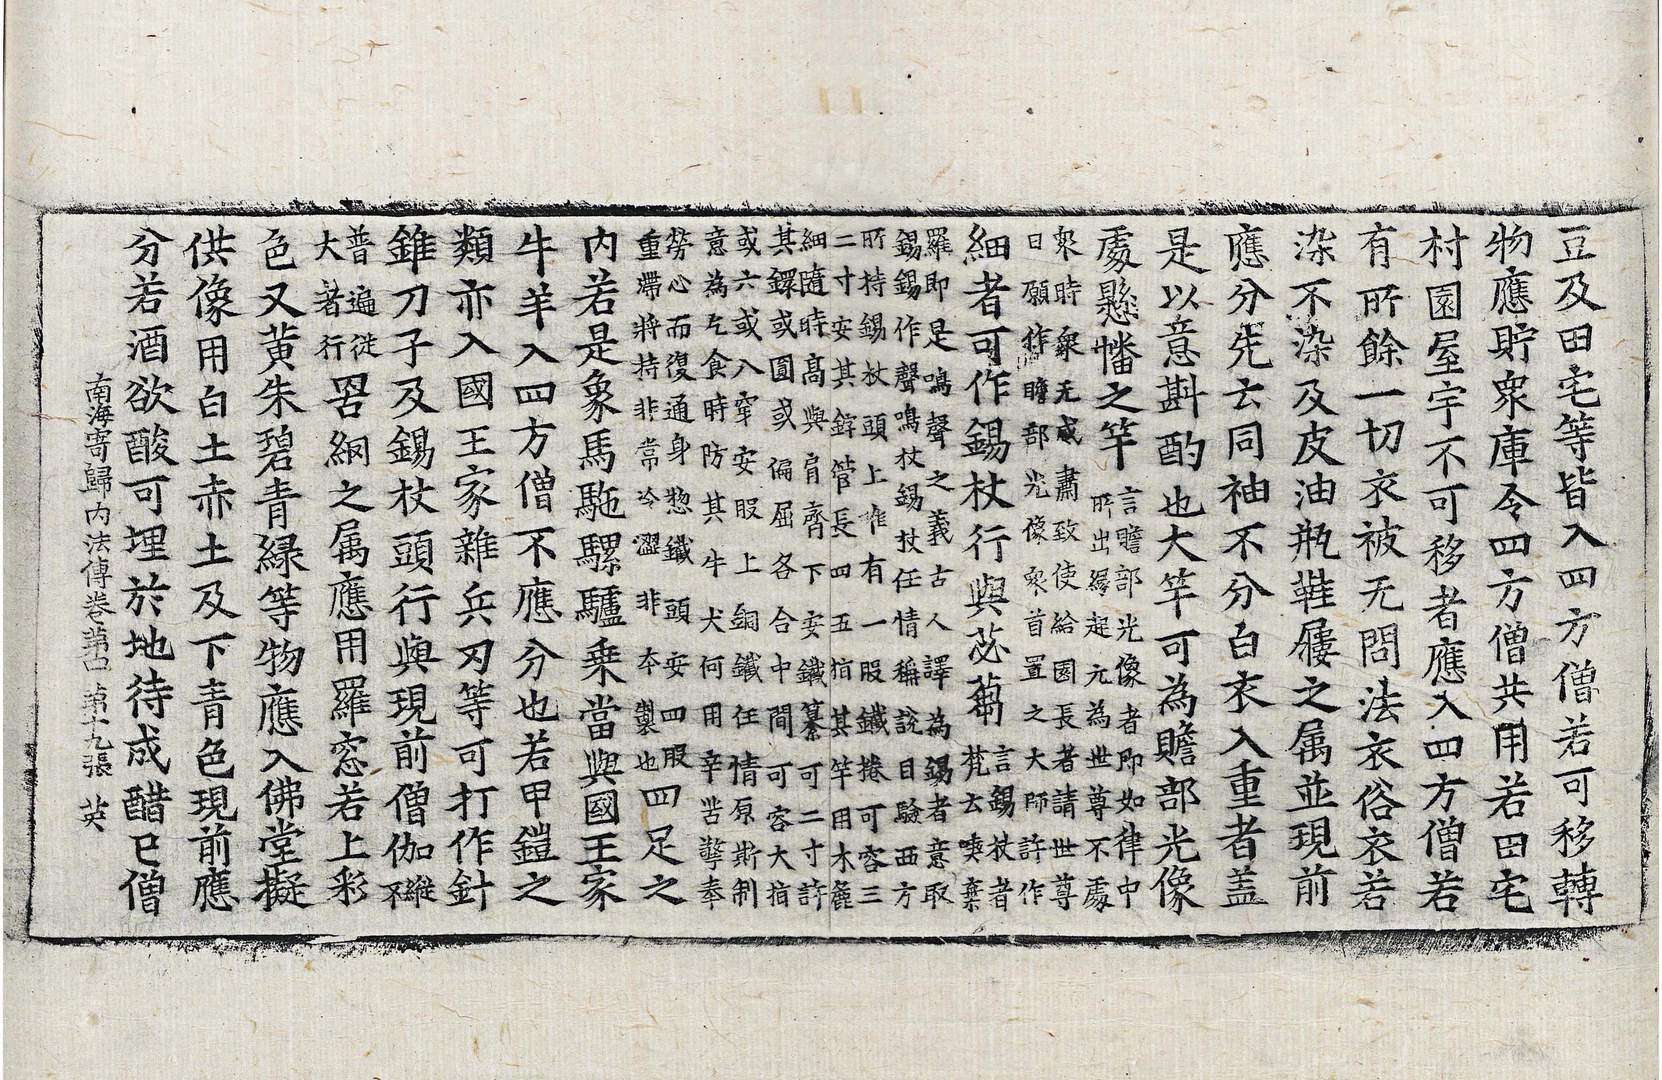 豆及田宅等皆入四方僧若可移轉
物應貯衆庫令四方僧共用若田宅
村園屋宇不可移者應入四方僧若
有所餘一切衣被无問法衣俗衣若
染不染及皮油瓶鞋屨之属並現前
應分先云同袖不分白衣入重者蓋
是以意斟酌也大竿可為贍部光像
處懸幡之竿言贍部光像者即如律中
所出縁起元為世尊不處
衆時衆无威肅致使給園長者請世尊
日願作贍部光像衆首置之大師許作
細者可作錫杖行與苾蒭言錫杖者
梵云喫棄
羅即是鳴聲之義古人譯為錫者意取
錫錫作聲鳴杖錫杖任情稱說目驗西方
所持錫杖頭上唯有一股鐵捲可容三
二寸安其錞管長四五指其竿用木麁
細隨時高與肩齊下安鐵纂可二寸許
其鐶或圓或偏屈各合中間可容大指
或六或八穿安股上銅鐵任情原斯制
意為乞食時防其牛犬何用辛苦擎奉
勞心而復通身惣鐵頭安四股
重滯將持非常冷澀非本製也四足之
内若是象馬駞騾驢乗當與國王家
牛羊入四方僧不應分也若甲鎧之
類亦入國王家雜兵刃等可打作針
錐刀子及錫杖頭行與現前僧伽縱
不
普遍從
大者行罟網之属應用羅窓若上彩
色又黄朱碧青緑等物應入佛堂擬
供像用白土赤土及下青色現前應
分若酒欲酸可埋於地待成醋已僧
南海寄歸内法傳卷第四 第十九張 英